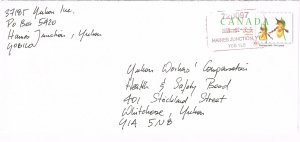 37185 Yukon Inc.
PO Box 5420
Haines Junction, Yukon
Y0B1L0
CANADA
HAINES JUNCTION, Y
Y0B 1L0
Yukon Workers' Compensation
Health & Safety Board
401 Strickland Street
Whitehorse, Yukon
Y1A 5N8